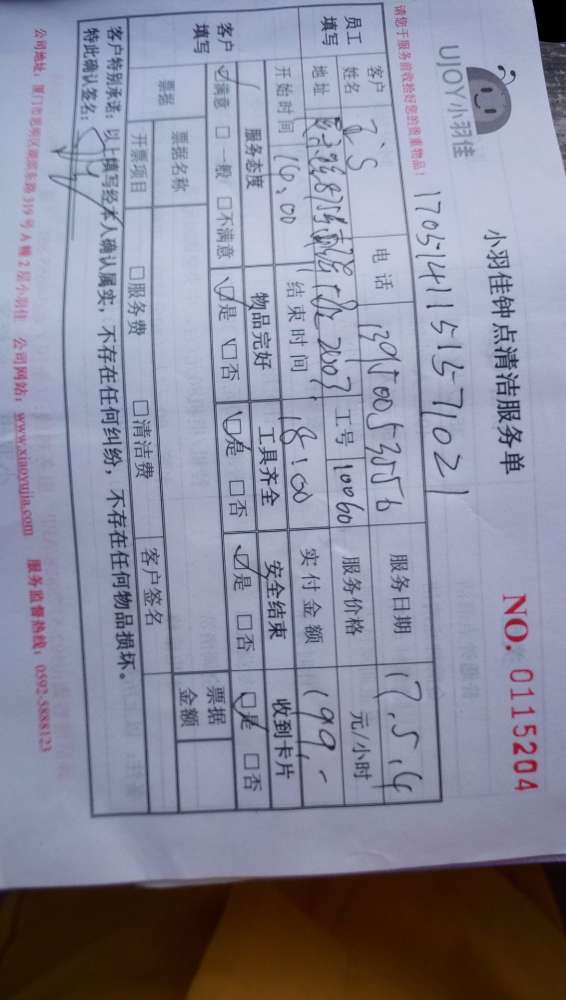 UJOY小羽佳
小羽佳钟点清洁服务单
NO. 0115204
请您于服务前收捡好您的贵重物品!
1705141151571021
员工填写
客户姓名
电话 13950053056
服务日期 17.5.4
地址 2007
工号 10060
服务价格 元/小时
开始时间 16:00
结束时间 18:00
实付金额 199.-
客户填写
服务态度 物品完好 工具齐全 安全结束 收到卡片
☑满意 □一般 □不满意 ☑是 □否 ☑是 □否 ☑是 □否 ☑是 □否
票据 票据名称 客户签名 票据金额
开票项目 □服务费 □清洁费
客户特别承诺:以上填写经本人确认属实,不存在任何纠纷,不存在任何物品损坏。
特此确认签名:
公司地址:厦门市思明区湖滨东路319号A幢2层小羽佳 公司网站:www.xiaoyujia.com 服务监督热线:0592-5888123